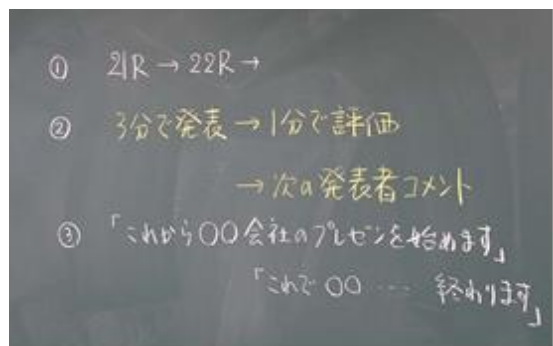 ① 21R→22R→
② 3分で発表→1分で評価
→次の発表者コメント
③ 「これから〇〇会社のプレゼンを始めます」
「これで〇〇…終わります」